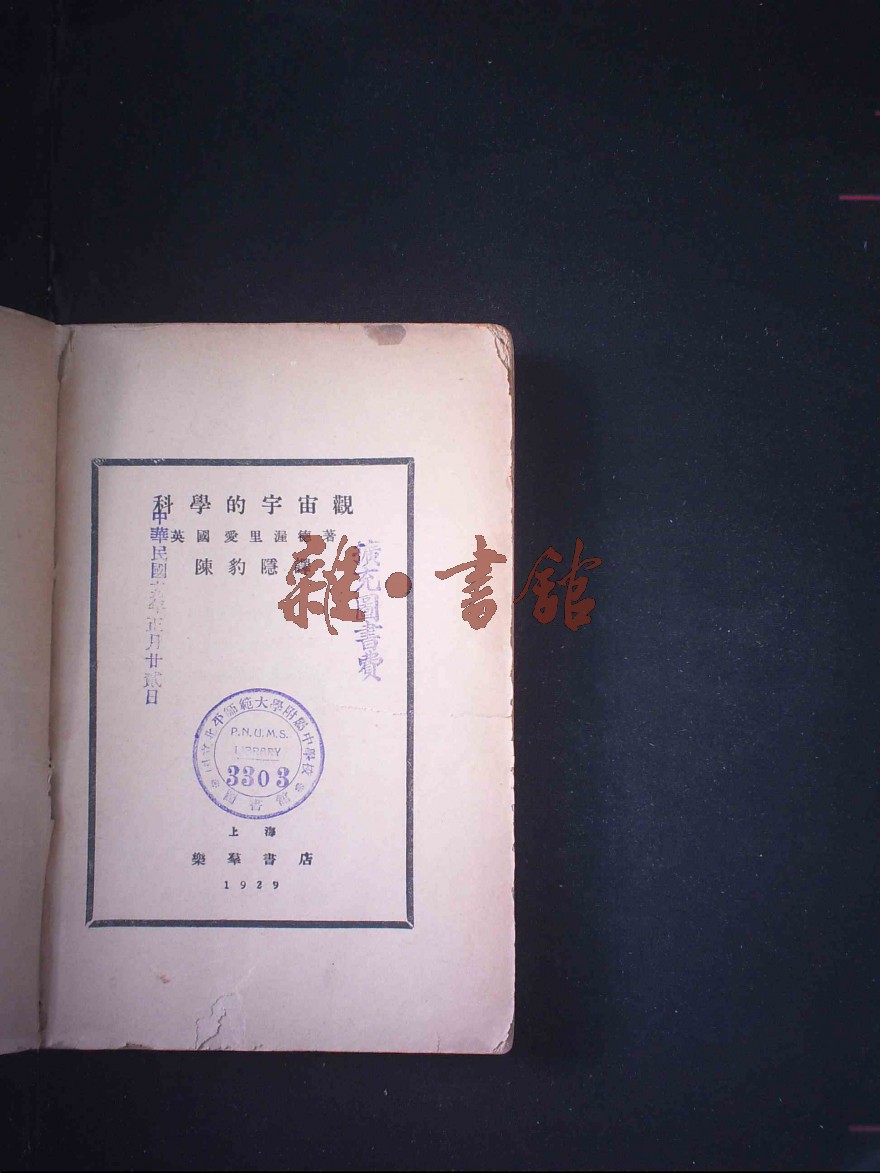 科學的宇宙觀
英國愛里渥德著
陳豹隱譯
中華民國十九年正月廿貳日
擴充圖書費
雜·書館
國立北平師範大學附屬中學校
P.N.U.M.S.
LIBRARY
3303
圖書館
上海
樂羣書店
1929